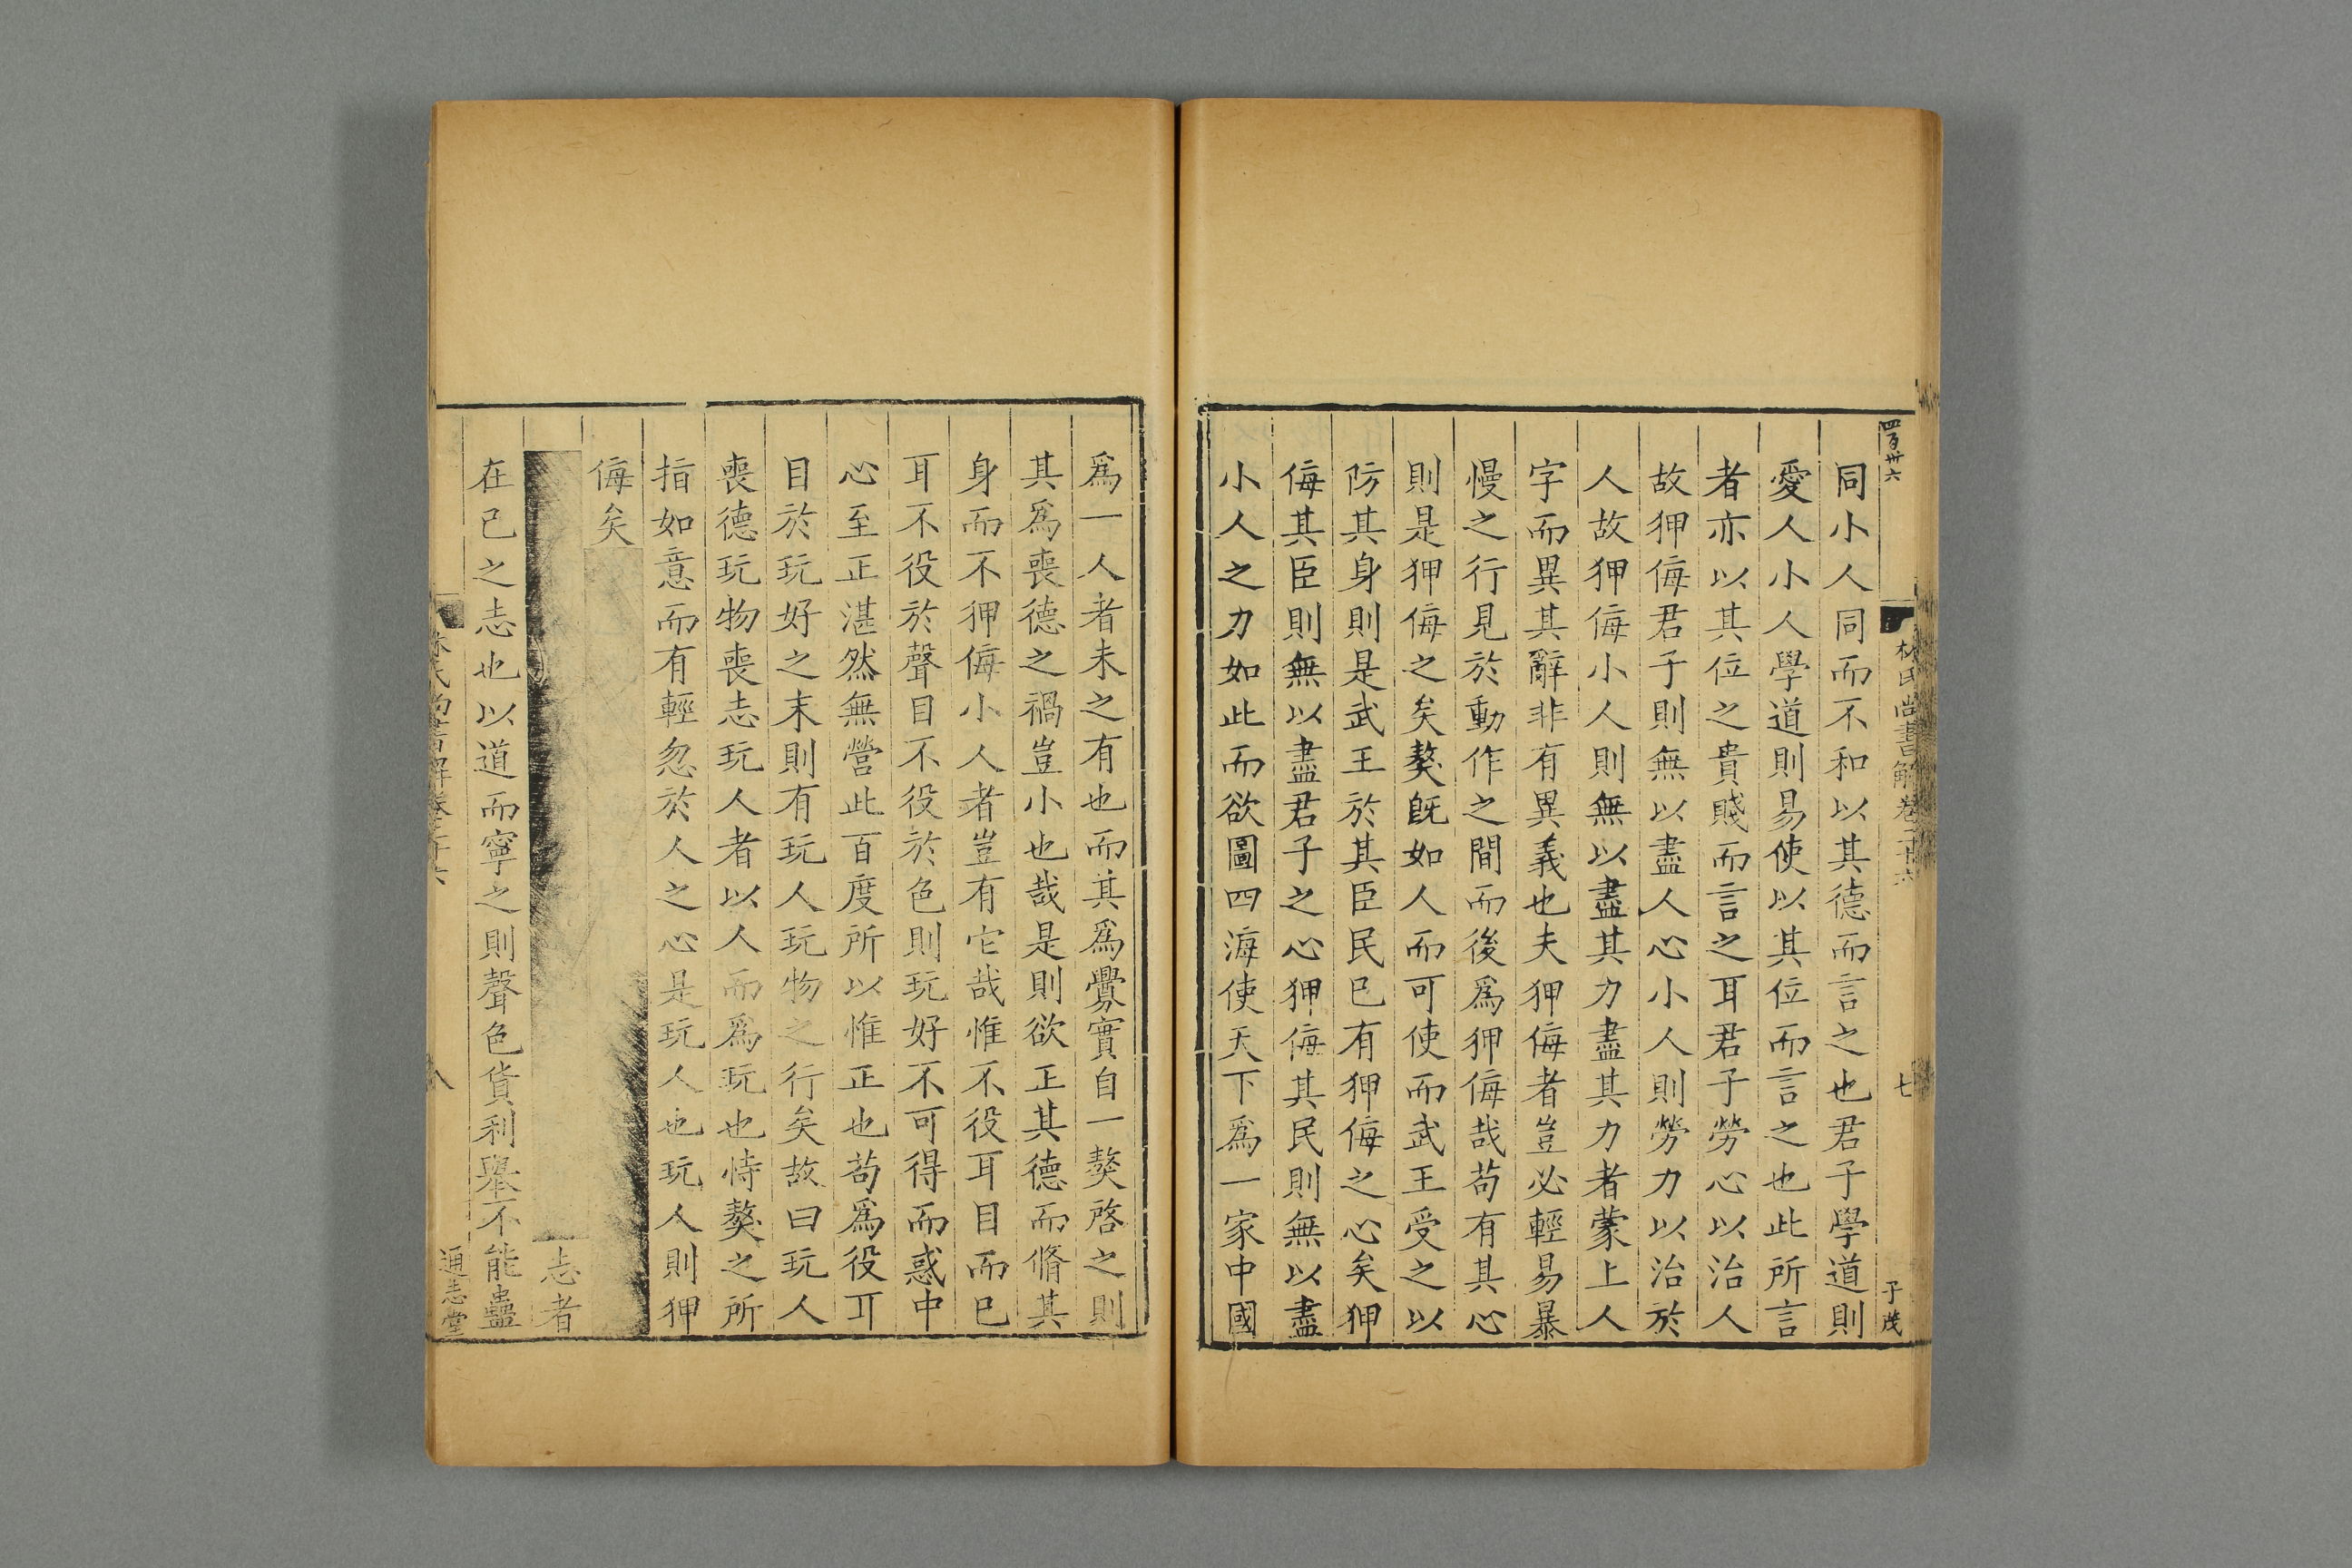 四百卅六
林氏尚書解卷二十六
七
子茂
同小人同而不和以其德而言之也君子學道則
愛人小人學道則易使以其位而言之也此所言
者亦以其位之貴賤而言之耳君子勞心以治人
故狎侮君子則無以盡人心小人則勞力以治於
人故狎侮小人則無以盡其力盡其力者蒙上人
字而異其辭非有異義也夫狎侮者豈必輕易暴
慢之行見於動作之間而後爲狎侮哉苟有其心
則是狎侮之矣獒旣如人而可使而武王受之以
防其身則是武王於其臣民已有狎侮之心矣狎
侮其臣則無以盡君子之心狎侮其民則無以盡
小人之力如此而欲圖四海使天下爲一家中國
爲一人者未之有也而其爲釁實自一獒啓之則
其爲喪德之禍豈小也哉是則欲正其德而脩其
身而不狎侮小人者豈有它哉惟不役耳目而已
耳不役於聲目不役於色則玩好不可得而惑中
心至正湛然無營此百度所以惟正也苟爲役耳
目於玩好之末則有玩人玩物之行矣故曰玩人
喪德玩物喪志玩人者以人而爲玩也恃獒之所
指如意而有輕忽於人之心是玩人也玩人則狎
侮矣
志者
在己之志也以道而寧之則聲色貨利舉不能蠱
林氏尚書解卷二十六
八
通志堂